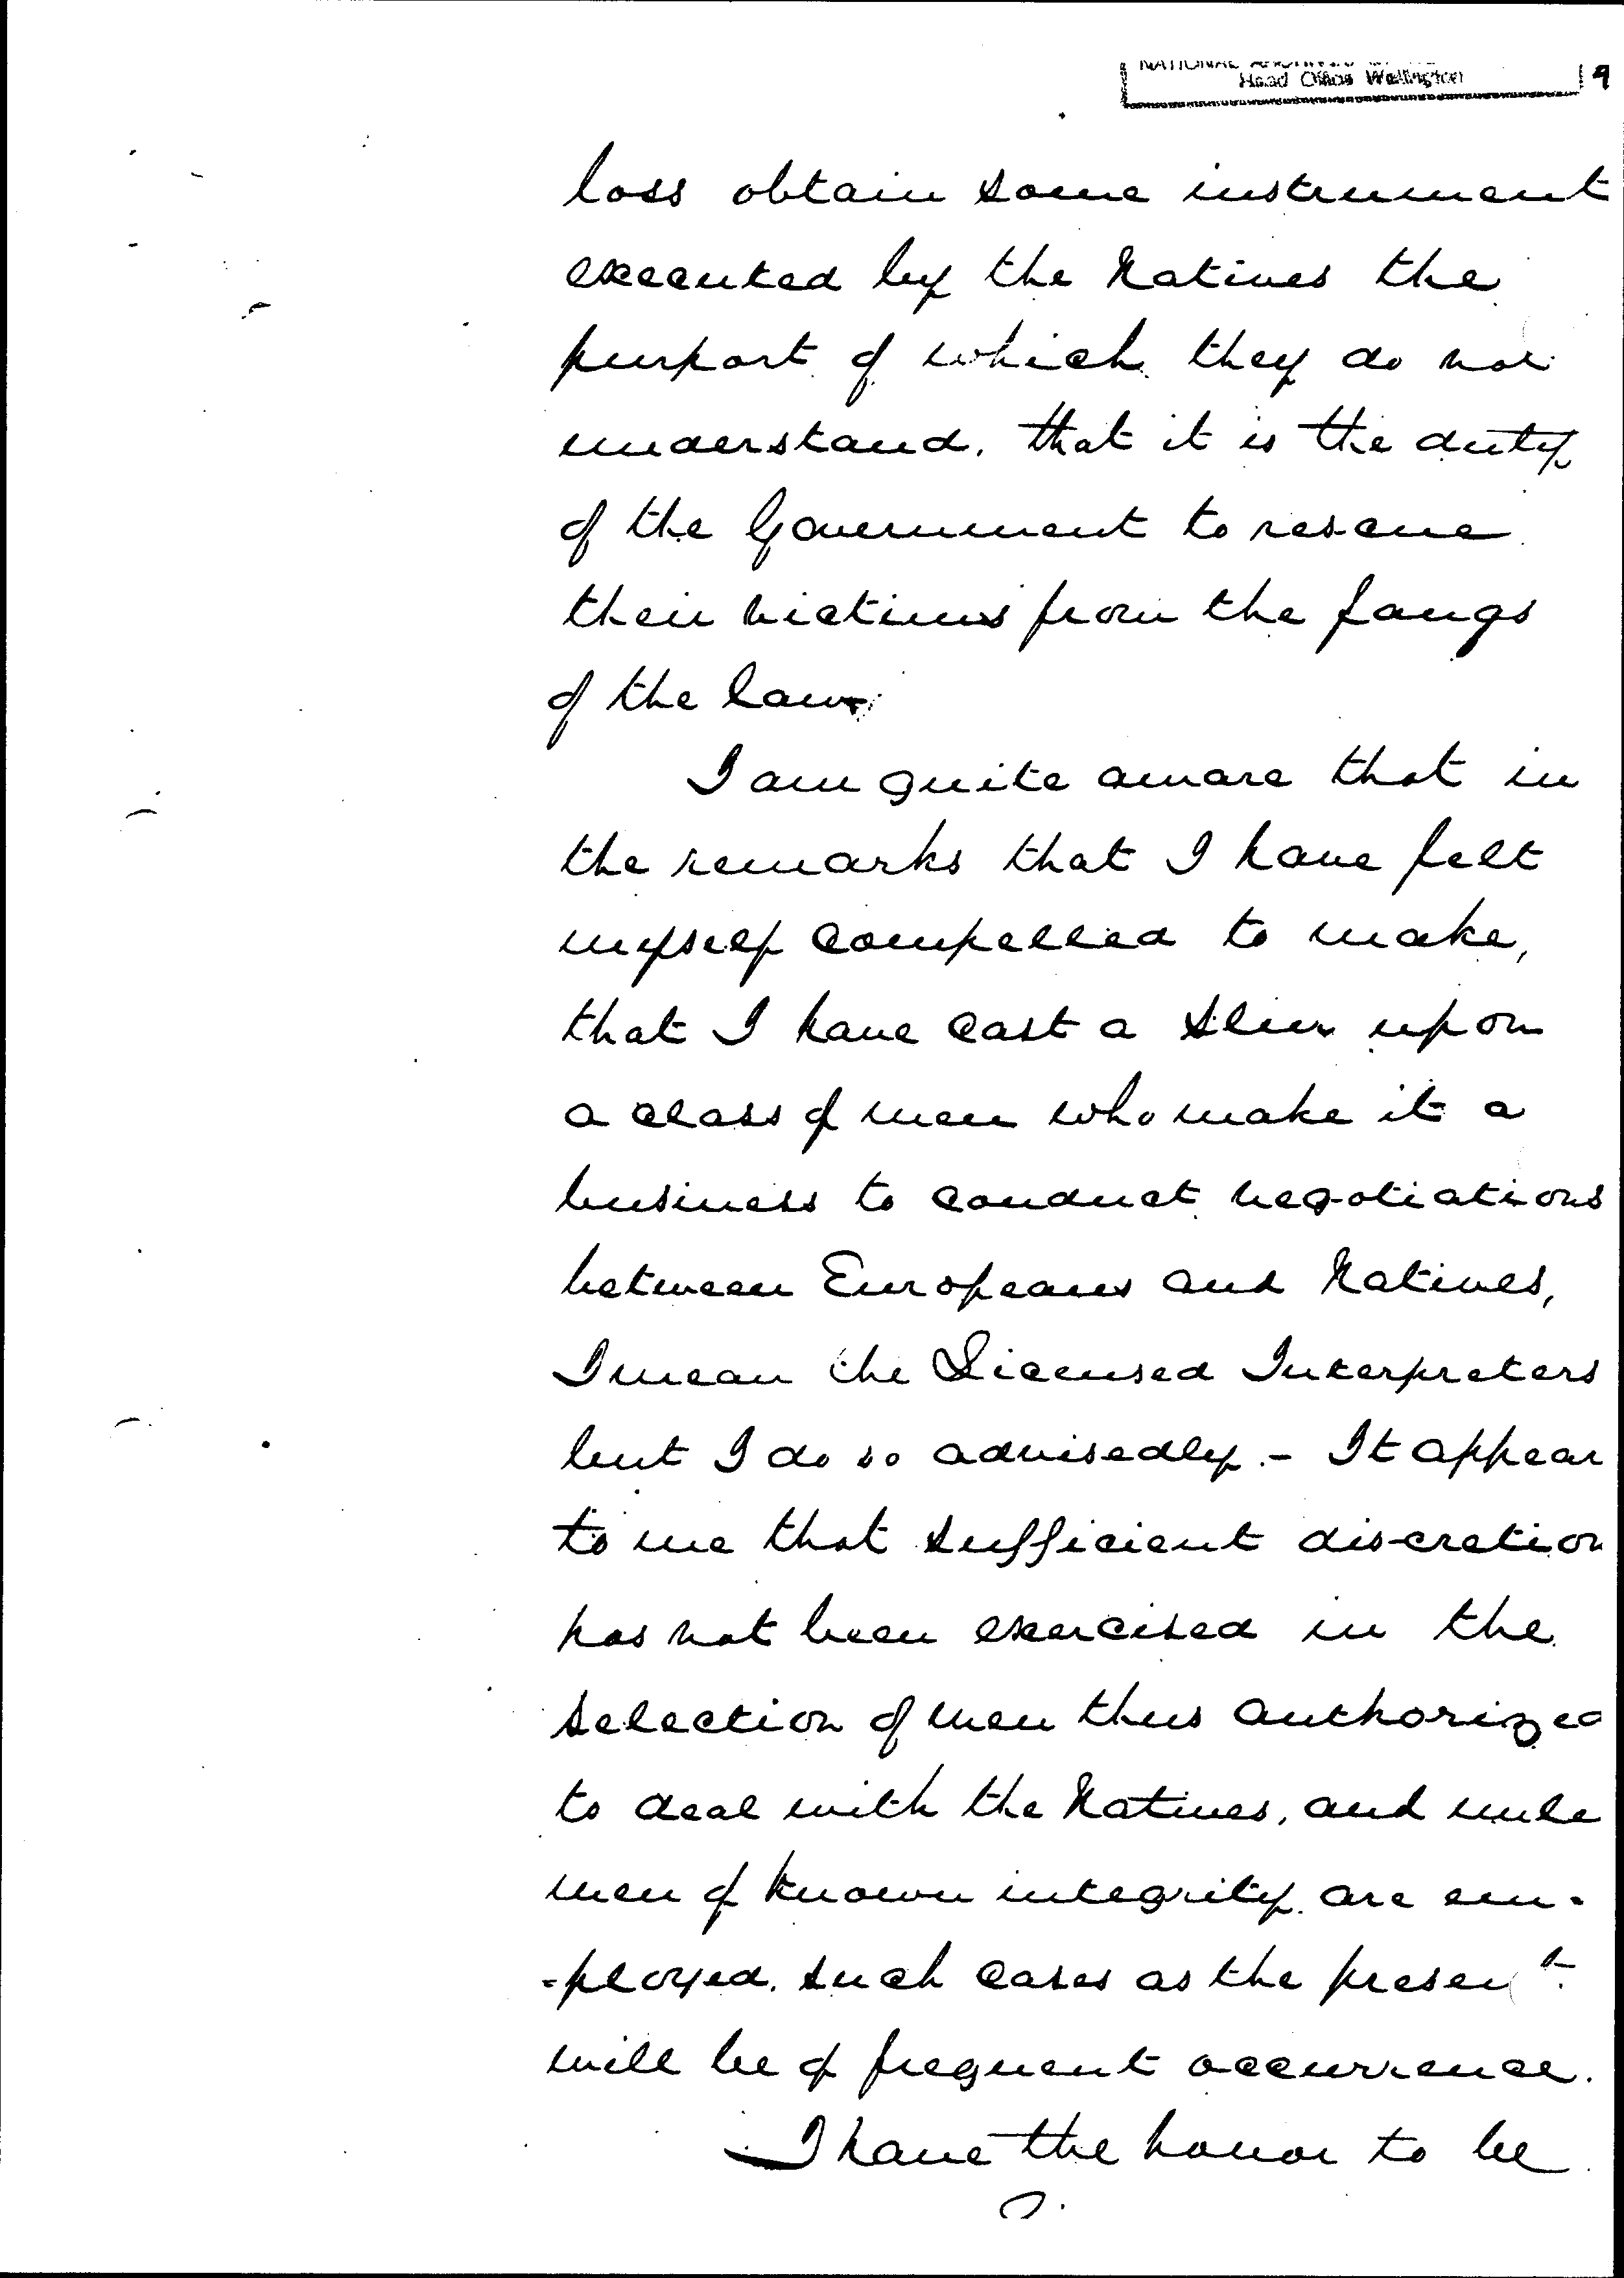 Head Office Wellington
19
loss obtain some instrument
executed by the Natives the
purport of which they do not
understand, that it is the duty
of the Government to rescue
their victims from the fangs
of the law.
I am quite aware that in
the remarks that I have felt
myself compelled to make,
that I have cast a slur upon
a class of men who make it a
business to conduct negotiations
between Europeans and Natives,
I mean the Licensed Interpreters
but I do so advisedly. - It appear
to me that sufficient discretion
has not been exercised in the
selection of men thus authorized
to deal with the Natives, and unle
men of known integrity are em-
-ployed, such cases as the present
will be of frequent occurrence.
I have the honor to be